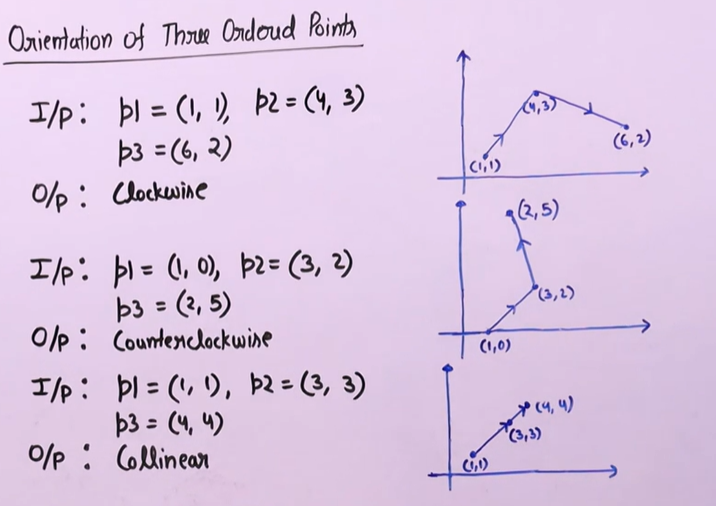 Orientation of Three Ordered Points
I/p: p1 = (1, 1), p2 = (4, 3)
p3 = (6, 2)
O/p: Clockwise
(4,3)
(6,2)
(1,1)
I/p: p1 = (1, 0), p2 = (3, 2)
p3 = (2, 5)
O/p: Counterclockwise
(2,5)
(3,2)
(1,0)
I/p: p1 = (1, 1), p2 = (3, 3)
p3 = (4, 4)
O/p: Collinear
(4,4)
(3,3)
(1,1)